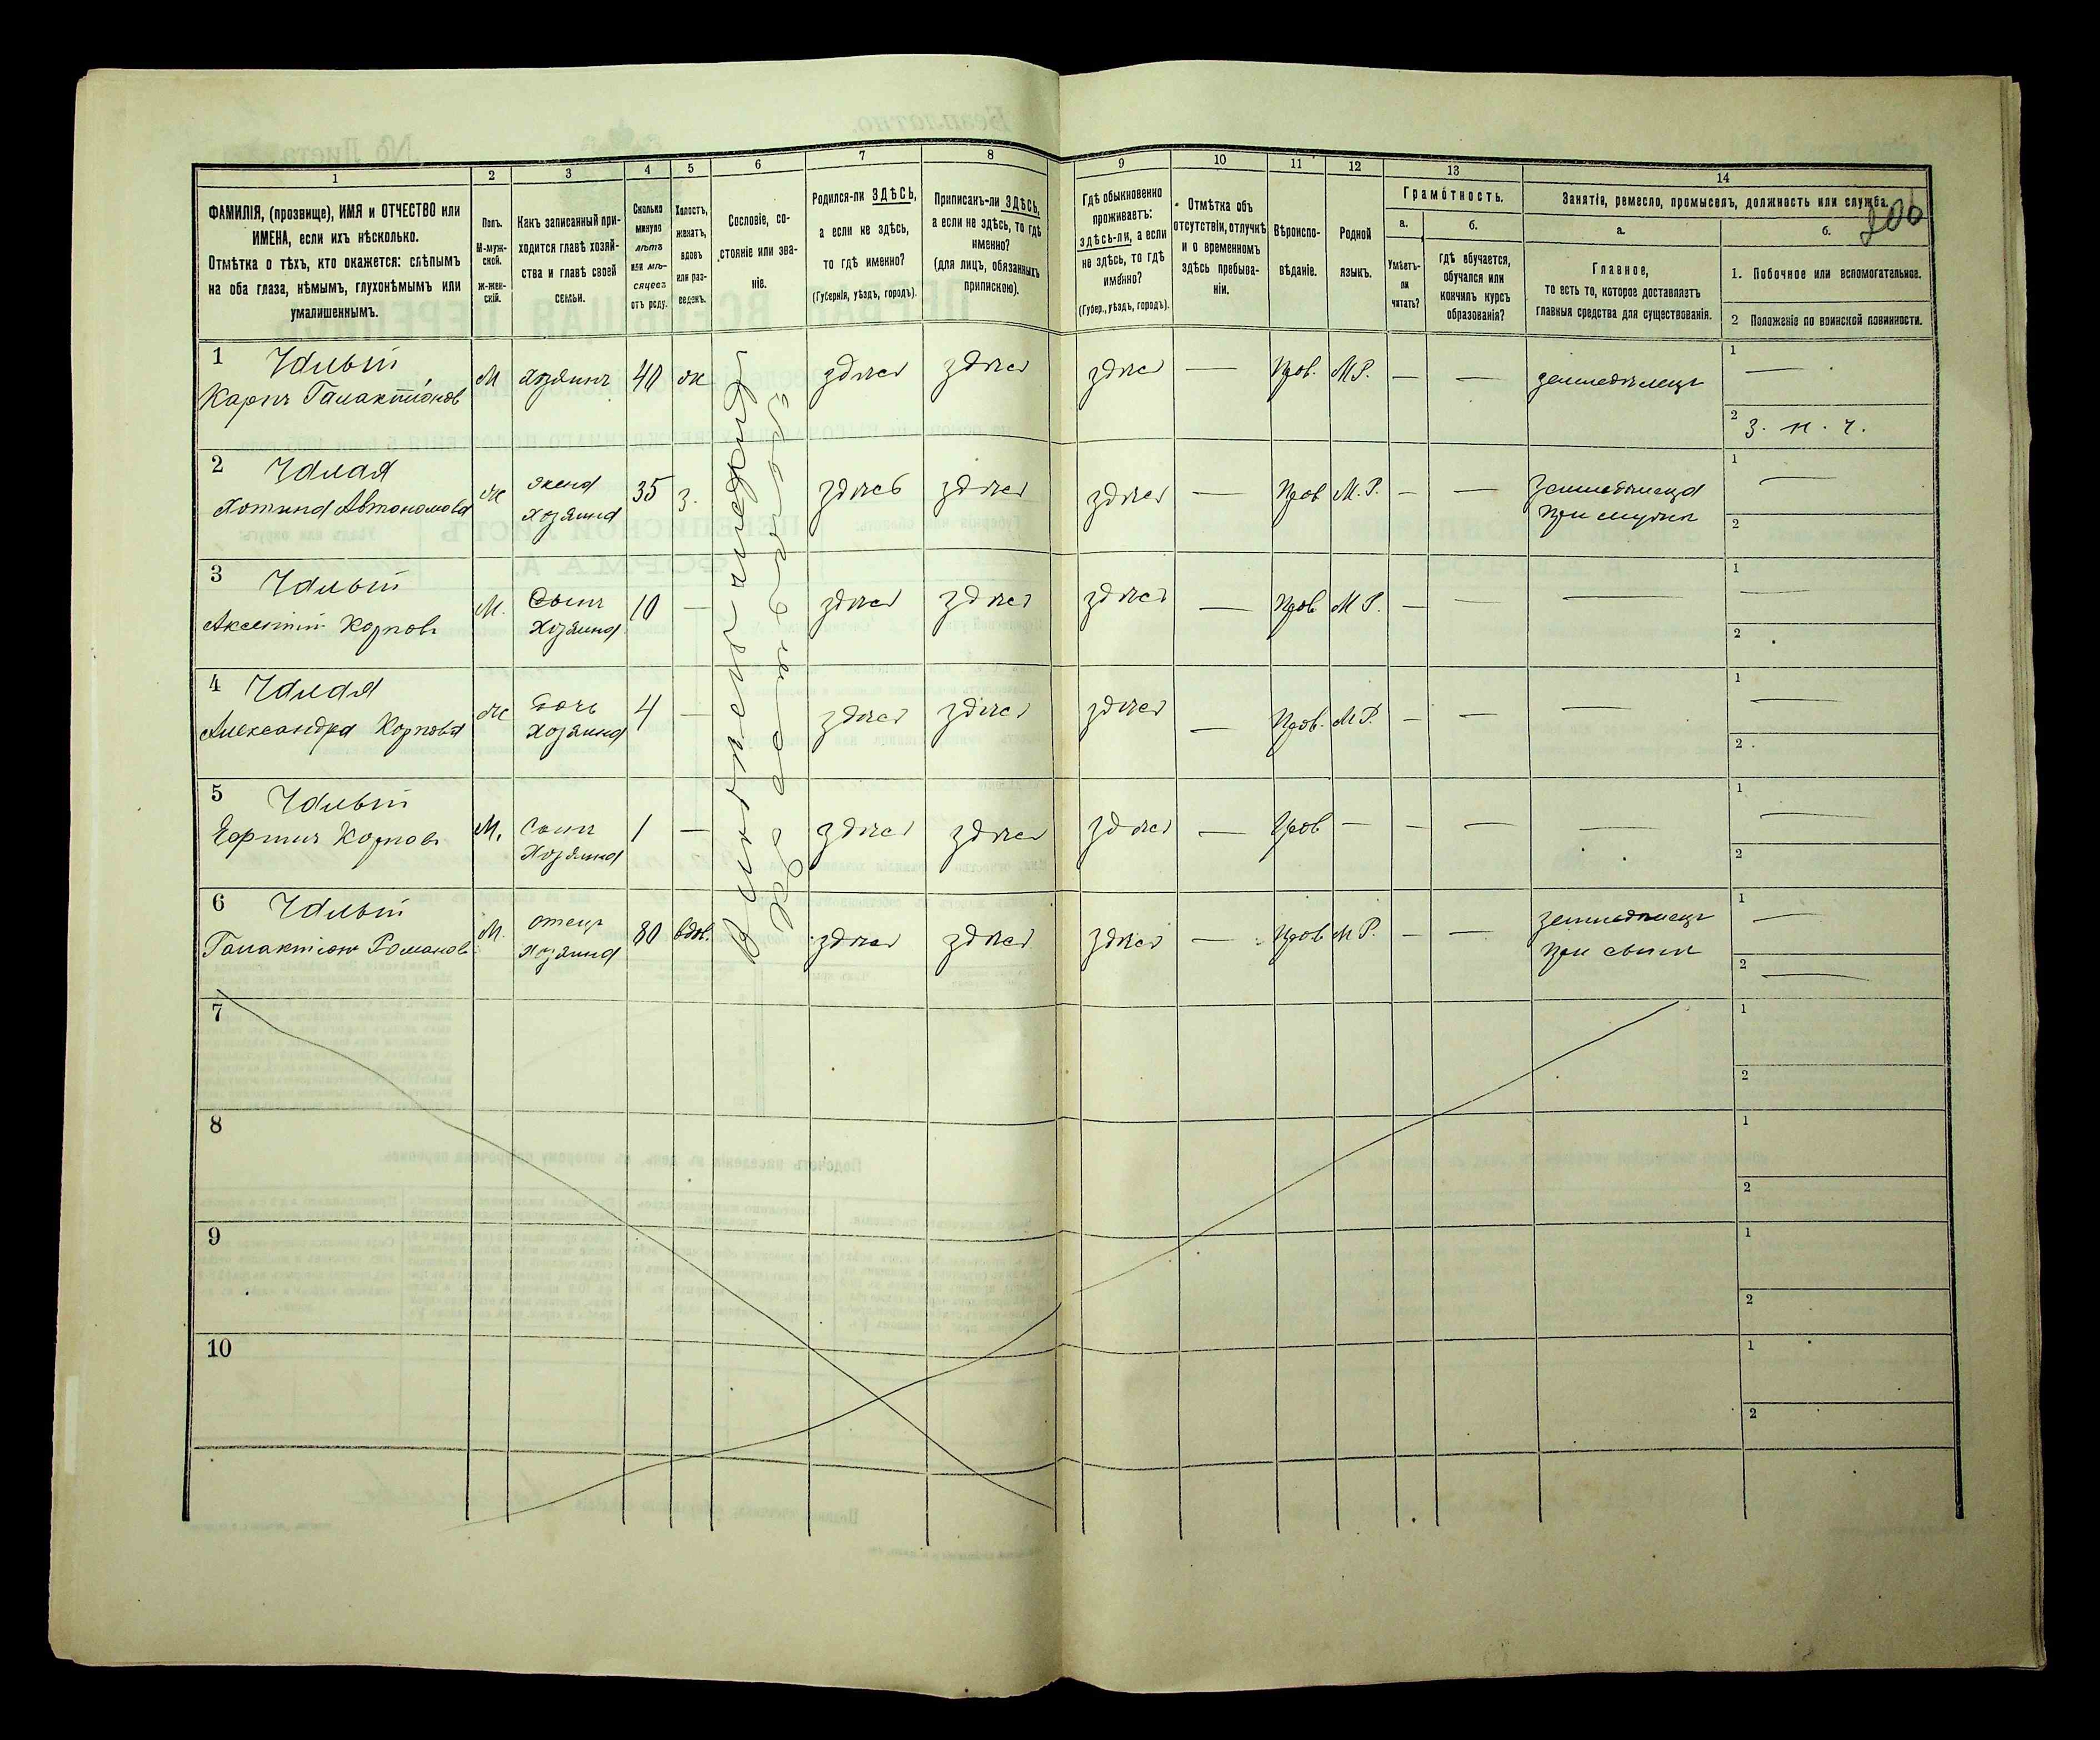 206
1
2
3
4
5
6
7
8
9
10
11
12
13
14
ФАМИЛІЯ, (прозвище), ИМЯ и ОТЧЕСТВО или
ИМЕНА, если ихъ нѣсколько.
Отмѣтка о тѣхъ, кто окажется: слѣпымъ
на оба глаза, нѣмымъ, глухонѣмымъ или
умалишеннымъ.
Полъ.
М-муж-
ской.
Ж-жен-
скій.
Какъ записанный при-
ходится главѣ хозяй-
ства и главѣ своей
семьи.
Сколько
минуло
лѣтъ
или мѣ-
сяцевъ
отъ роду.
Холостъ,
женатъ,
вдовъ
или раз-
веденъ.
Сословіе, со-
стояніе или зва-
ніе.
Родился-ли ЗДѢСЬ,
а если не здѣсь,
то гдѣ именно?
(Губернія, уѣздъ, городъ).
Приписанъ-ли ЗДѢСЬ,
а если не здѣсь, то гдѣ
именно?
(для лицъ, обязанныхъ
припискою).
Гдѣ обыкновенно
проживаетъ:
здѣсь-ли, а если
не здѣсь, то гдѣ
именно?
(Губер., уѣздъ, городъ).
Отмѣтка объ
отсутствіи, отлучкѣ
и о временномъ
здѣсь пребыва-
ніи.
Вѣроиспо-
вѣданіе.
Родной
языкъ.
Грамотность.
а.
Умѣетъ-
ли
читать?
б.
гдѣ обучается,
обучался или
кончилъ курсъ
образованія?
Занятіе, ремесло, промыселъ, должность или служба.
а.
Главное,
то есть то, которое доставляетъ
главныя средства для существованія.
б.
1. Побочное или вспомогательное.
2 Положеніе по воинской повинности.
1 Чалый
Карпъ Галактіонов
М хозяинъ 40 ж здѣсь здѣсь здѣсь — Прав. М.Р. — — земледѣлецъ
1 —
2 З. н. ч.
2 Чалая
Автономова
ж жена
хозяина
35 з. здѣсь здѣсь здѣсь — Прав М.Р. — —
при мужѣ
1 —
2
3 Чалый
Карповъ
М. Сынъ
Хозяина
10 — здѣсь здѣсь здѣсь — Прав М Р. — — —
1 —
2
4 Чалая
Александра Карпова
ж дочь
Хозяина
4 — здѣсь здѣсь здѣсь — Прав. М Р. — — —
1 —
2
5 Чалый
Карповъ
М. сынъ
Хозяина
1 — здѣсь здѣсь здѣсь — Прав — — — —
1 —
2
6 Чалый
Галактіонъ Романовъ
М. отецъ
Хозяина
80 вдов. здѣсь здѣсь здѣсь — Прав М Р. — — земледѣлецъ
при сынѣ
1 —
2 —
7
1
2
8
1
2
9
1
2
10
1
2